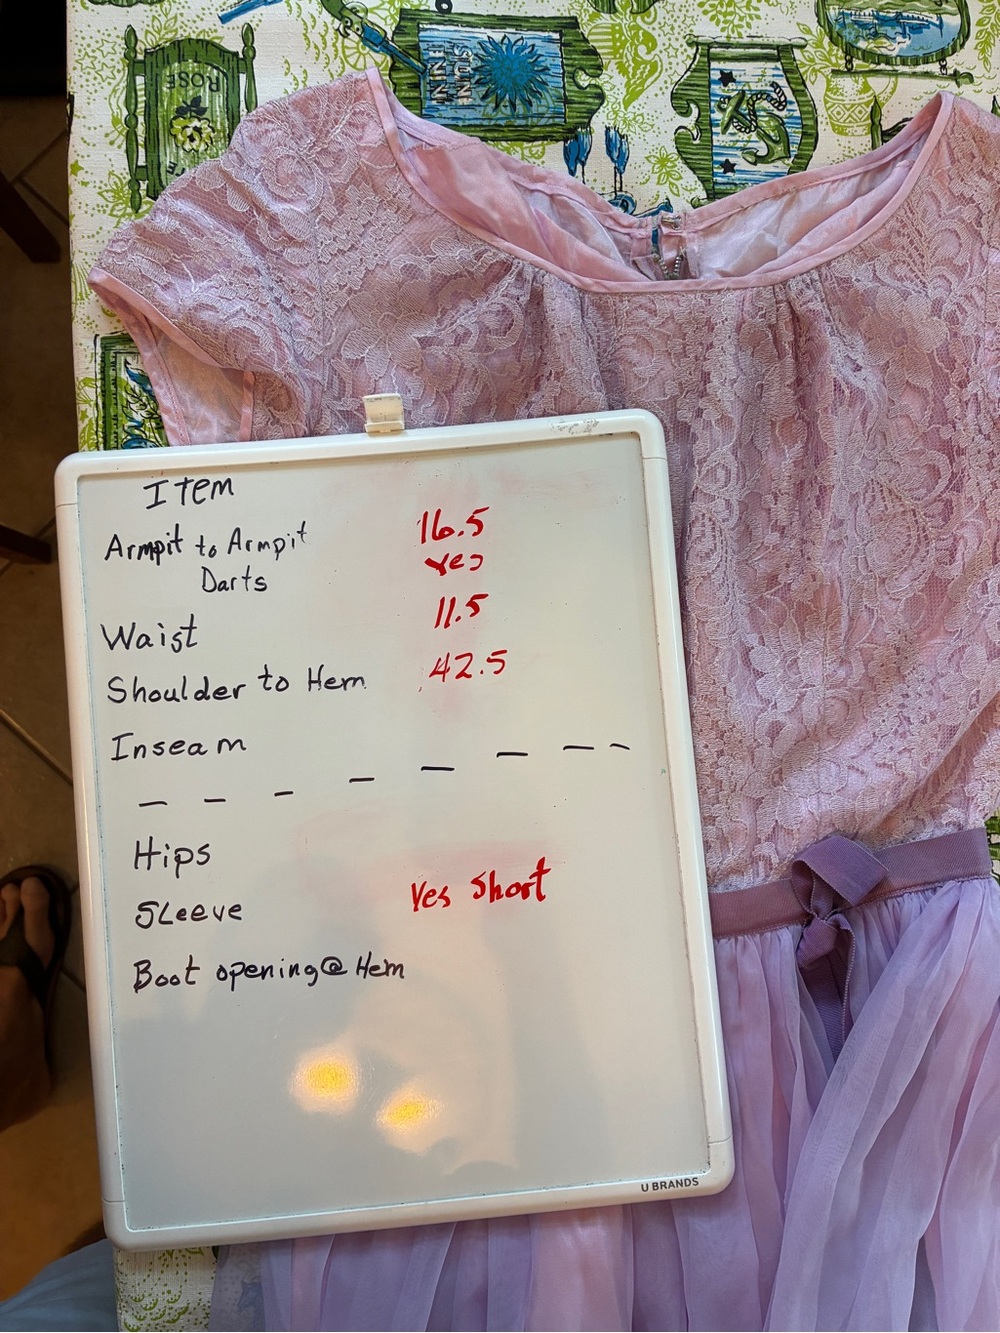 ROSE
NINE
SUNS
Item
Armpit to Armpit 16.5
Darts yes
Waist 11.5
Shoulder to Hem 42.5
Inseam
Hips
Sleeve Yes Short
Boot opening @ Hem
U BRANDS